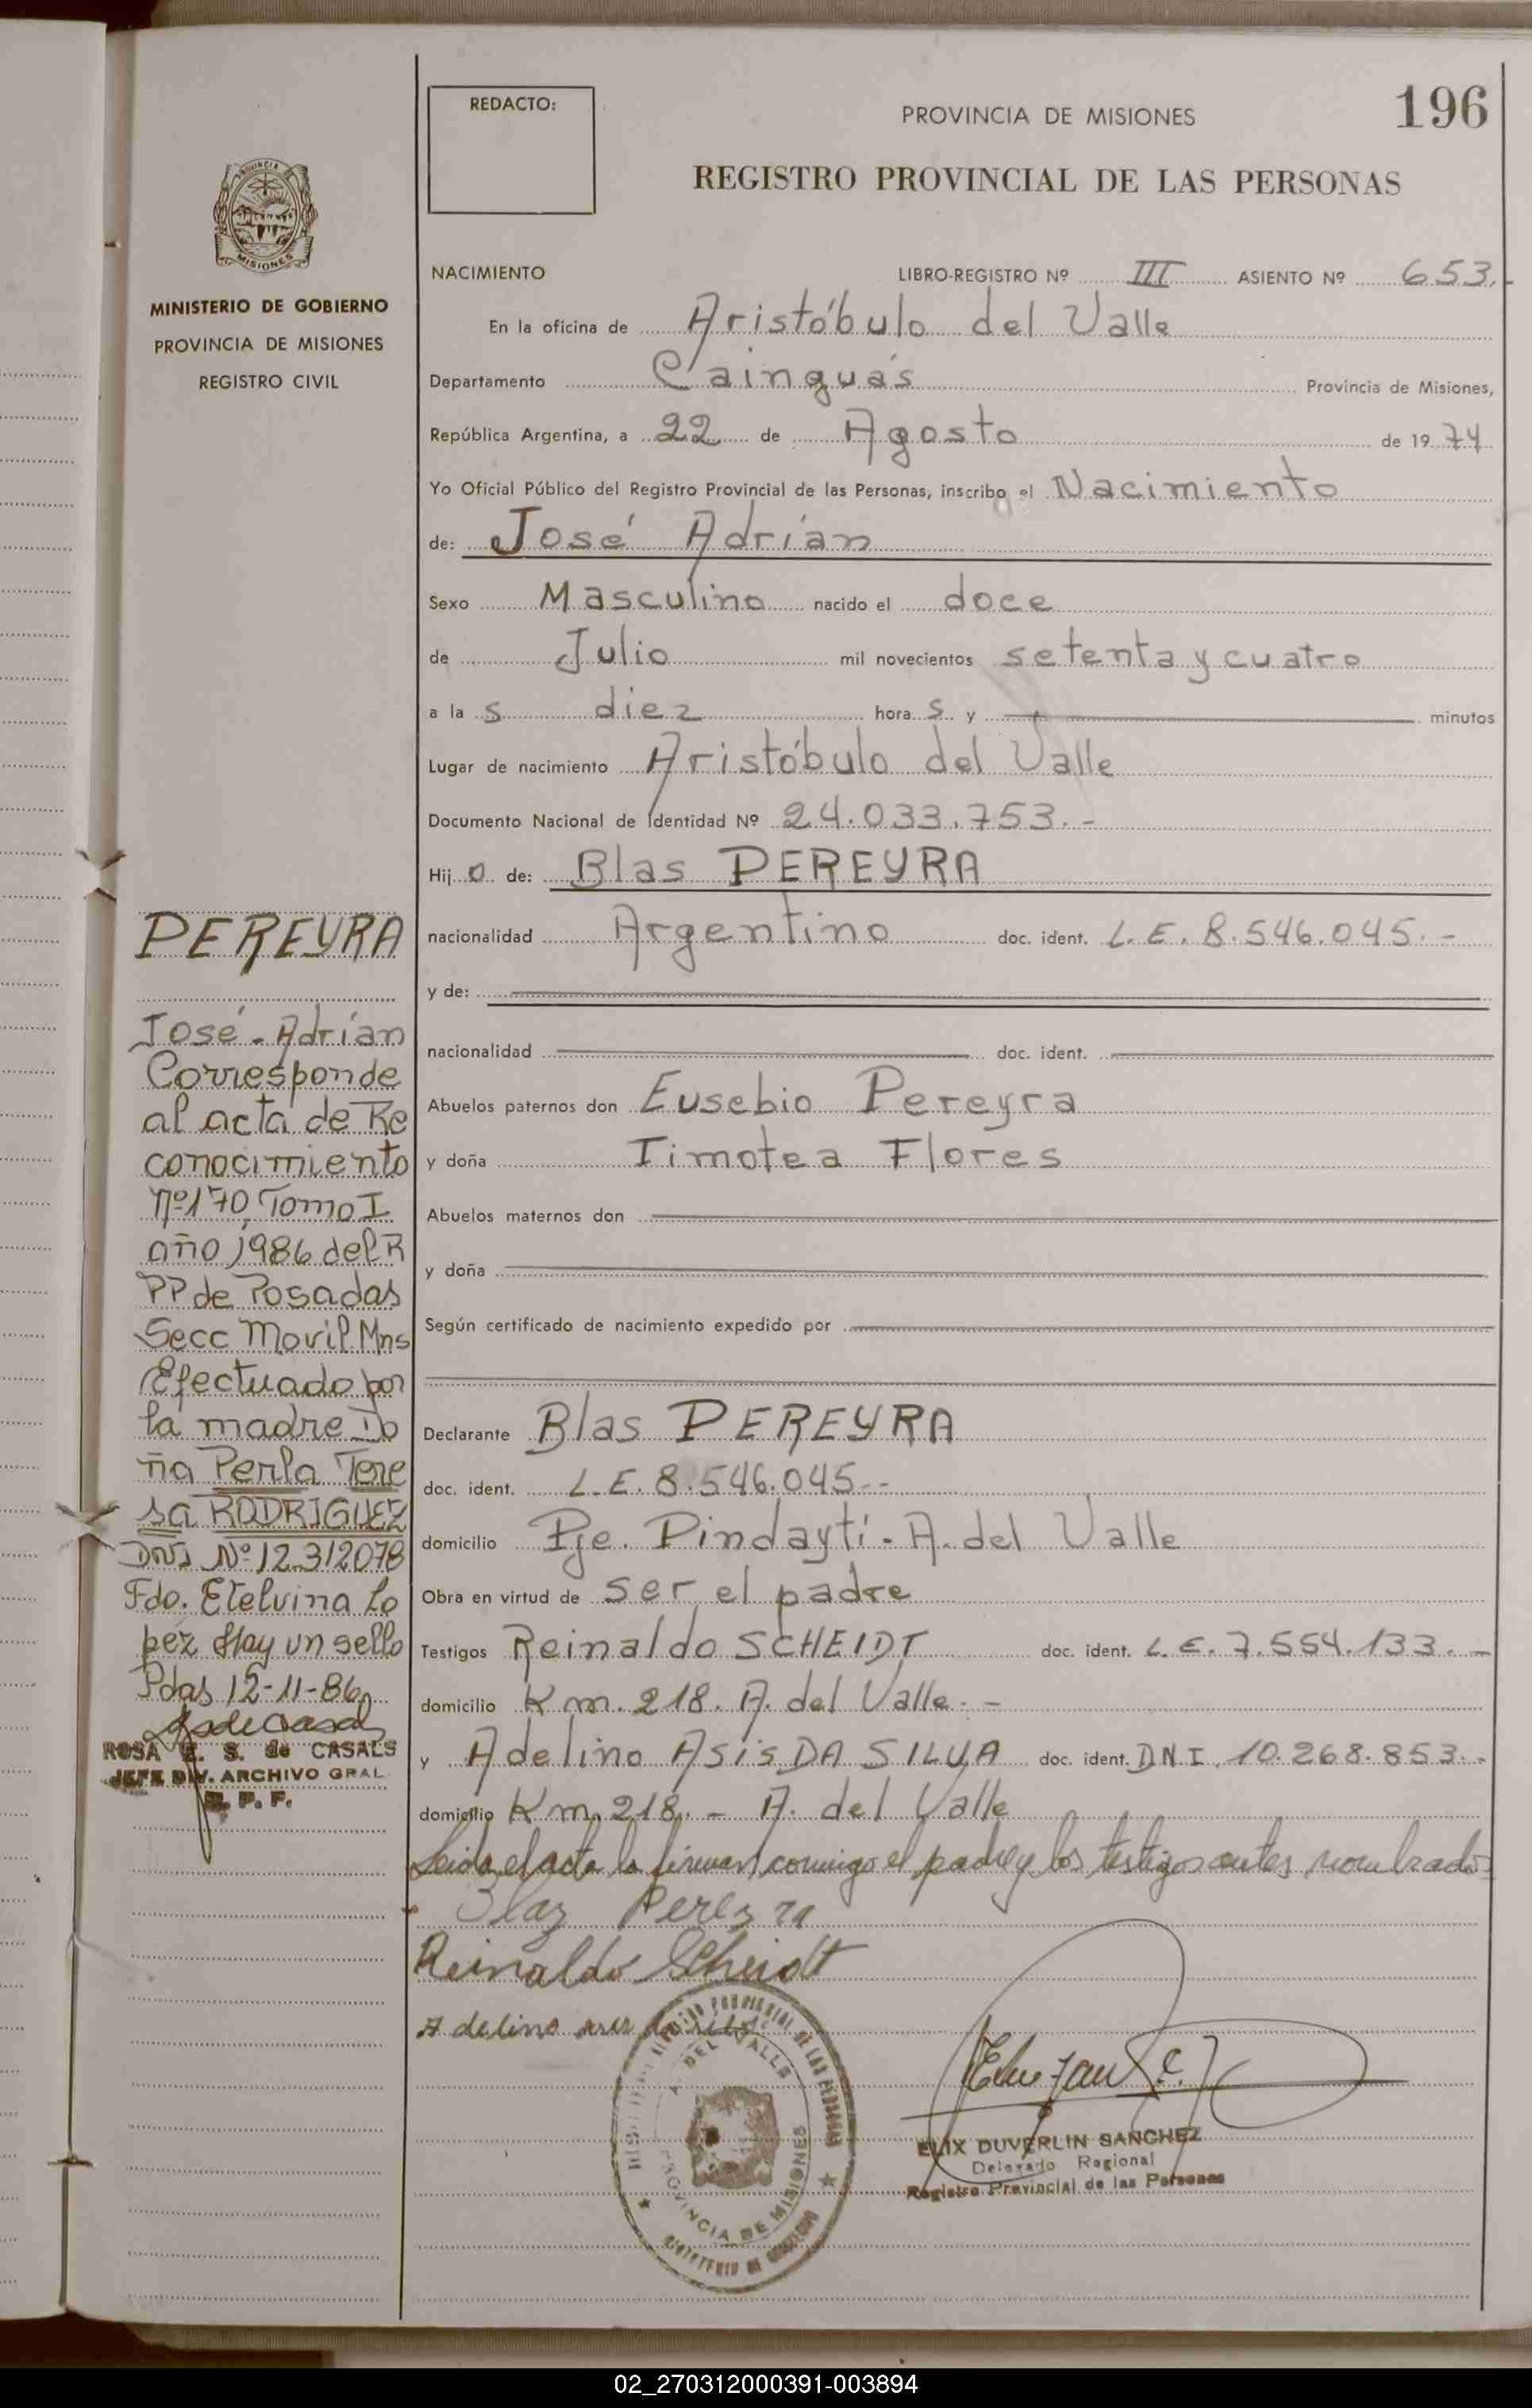 REDACTO:
PROVINCIA DE MISIONES
196
REGISTRO PROVINCIAL DE LAS PERSONAS
PROVINCIA DE
MISIONES
MINISTERIO DE GOBIERNO
PROVINCIA DE MISIONES
REGISTRO CIVIL
NACIMIENTO LIBRO-REGISTRO Nº III ASIENTO Nº 653.-
En la oficina de Aristóbulo del Valle
Departamento Cainguás Provincia de Misiones,
República Argentina, a 22 de Agosto de 1974
Yo Oficial Público del Registro Provincial de las Personas, inscribo el Nacimiento
de: José Adrían
Sexo Masculino nacido el doce
de Julio mil novecientos setenta y cuatro
a la s diez hora s y minutos
Lugar de nacimiento Aristóbulo del Valle
Documento Nacional de Identidad Nº 24.033.753.-
Hij o de: Blas PEREYRA
nacionalidad Argentino doc. ident. L.E. 8.546.045.-
y de:
nacionalidad doc. ident.
Abuelos paternos don Eusebio Pereyra
y doña Timotea Flores
Abuelos maternos don
y doña
Según certificado de nacimiento expedido por
Declarante Blas PEREYRA
doc. ident. L.E. 8.546.045.-
domicilio Pje. Pindaytí - A. del Valle
Obra en virtud de ser el padre
Testigos Reinaldo SCHEIDT doc. ident. L.E. 7.554.133.-
domicilio Km. 218. A. del Valle.-
y Adelino ASÍS DA SILVA doc. ident. DNI. 10.268.853.-
domicilio Km. 218. - A. del Valle
Leida el acta la firman conmigo el padre y los testigos antes nombrados
Blaz Pereyra
Reinaldo Scheidt
Adelino
A. DEL VALLE
PROVINCIA DE MISIONES
MINISTERIO DE GOBIERNO
ELIX DUVERLIN SANCHEZ
Delegado Regional
Registro Provincial de las Personas
PEREYRA
José - Adrían
Corresponde
al acta de Re
conocimiento
Nº 170, Tomo I
año 1986 del R
PP de Posadas
Secc Movil Mns
Efectuado por
la madre Do
ña Perla Tere
sa RODRIGUEZ
DNI Nº 12.312078
Fdo. Etelvina Lo
pez Hay un sello
Pdas 12-11-86
ROSA E. S. de CASALS
JEFE DIV. ARCHIVO GRAL
R. P. P.
02_270312000391-003894